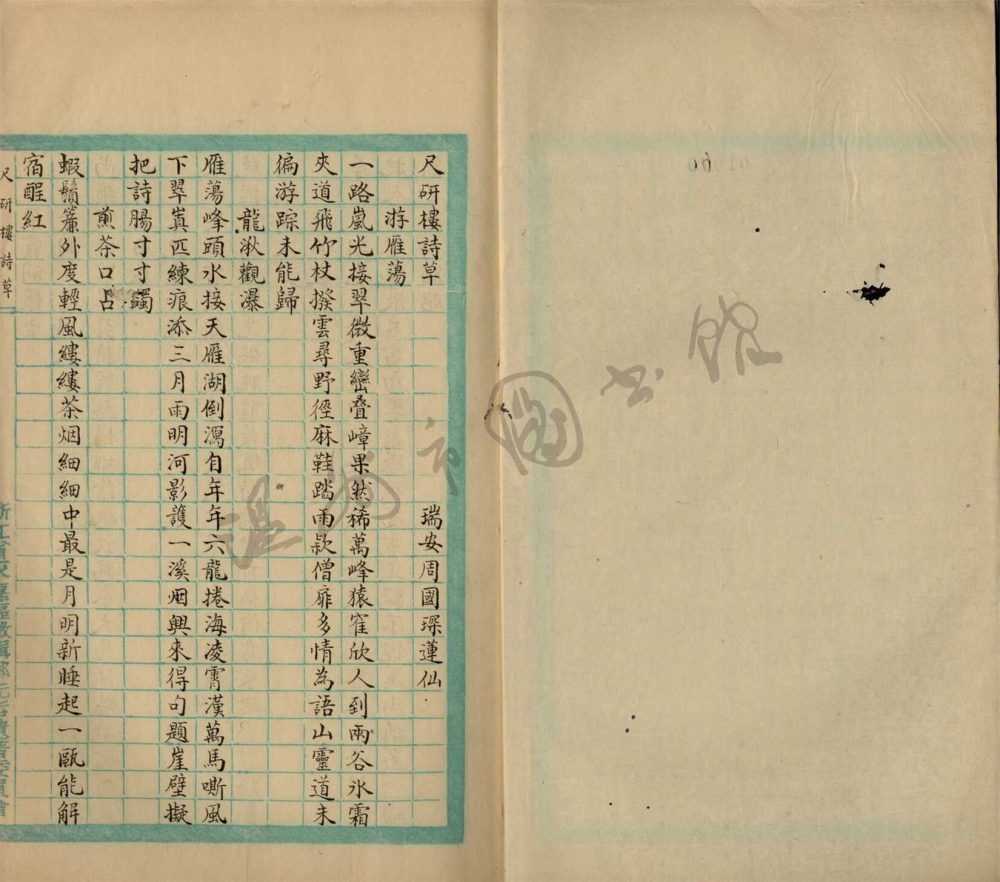 尺研樓詩草　瑞安周國琛蓮仙
游雁蕩
一路嵐光接翠微重巒叠嶂果然稀萬峰猿窂欣人到兩谷氷霜
夾道飛竹杖撥雲尋野徑麻鞋踏雨欵僧扉多情為語山靈道未
徧游踪未能歸
龍湫觀瀑
雁蕩峰頭水接天雁湖倒瀉自年年六龍捲海凌霄漢萬馬嘶風
下翠嵓匹練痕添三月雨明河影護一溪烟興來得句題崖壁擬
把詩腸寸寸鐫
煎茶口占
蝦鬚簾外度輕風縷縷茶烟細細中最是月明新睡起一甌能解
宿酲紅
尺研樓詩草
一
温州市圖書館